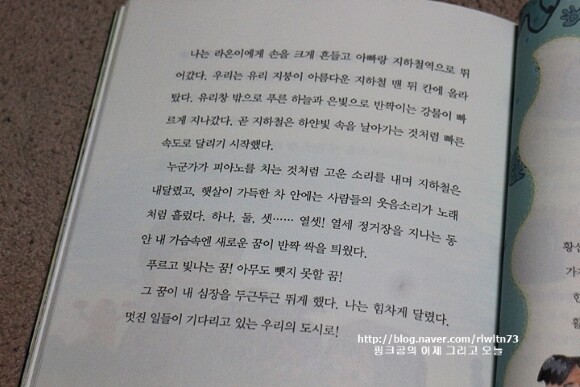 나는 라온이에게 손을 크게 흔들고 아빠랑 지하철역으로 뛰
어갔다. 우리는 유리 지붕이 아름다운 지하철 맨 뒤 칸에 올라
탔다. 유리창 밖으로 푸른 하늘과 은빛으로 반짝이는 강물이 빠
르게 지나갔다. 곧 지하철은 하얀빛 속을 날아가는 것처럼 빠른
속도로 달리기 시작했다.
누군가가 피아노를 치는 것처럼 고운 소리를 내며 지하철은
내달렸고, 햇살이 가득한 차 안에는 사람들의 웃음소리가 노래
처럼 흘렀다. 하나, 둘, 셋…… 열셋! 열세 정거장을 지나는 동
안 내 가슴속엔 새로운 꿈이 반짝 싹을 틔웠다.
푸르고 빛나는 꿈! 아무도 뺏지 못할 꿈!
그 꿈이 내 심장을 두근두근 뛰게 했다. 나는 힘차게 달렸다.
멋진 일들이 기다리고 있는 우리의 도시로!
황선
가
한
활
http://blog.naver.com/rlwltn73
핑크공의 어제 그리고 오늘